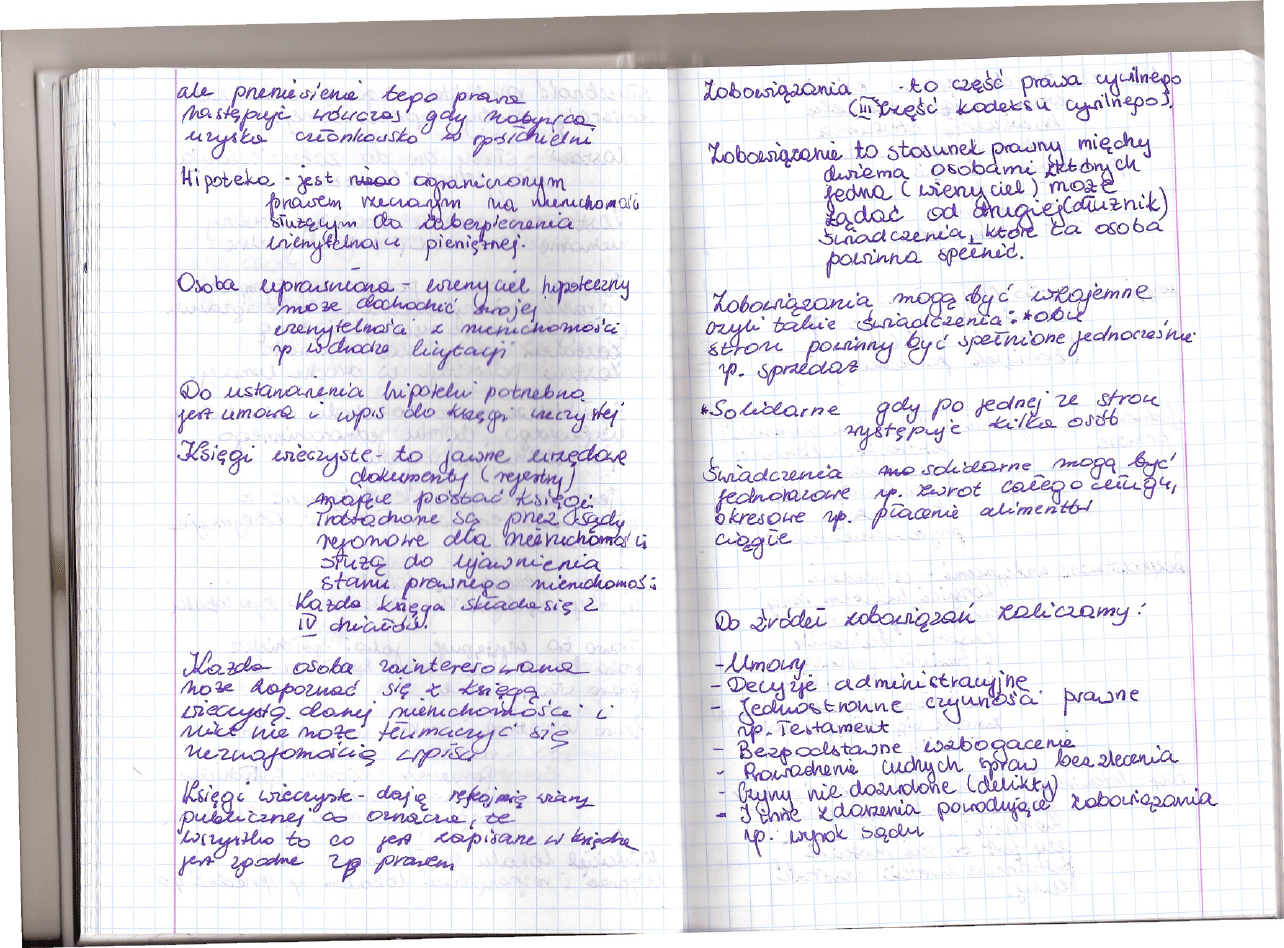 ale przeniesienie tego prawa
następuje wówczas gdy nabywca
uzyska członkowsko w spółdzielni
Hipoteka - jest ograniczonym
prawem rzeczowym na nieruchomości
służącym do zabezpieczenia
wierzytelności pieniężnej.
Osoba uprawniona - wierzyciel hipoteczny
może dochodzić swojej
wierzytelności z nieruchomości
np w drodze licytacji
Do ustanowienia hipoteki potrzebna
jest umowa i wpis do księgi wieczystej
Księgi wieczyste - to jawne urzędowe
dokumenty (rejestry)
mające postać księgi
Prowadzone są przez Sądy
rejonowe dla nieruchomości
służą do ujawnienia
stanu prawnego nieruchomości
Każda księga składa się z
IV działów.
Każda osoba zainteresowana
może zapoznać się z księgą
wieczystą danej nieruchomości i
nikt nie może tłumaczyć się
nieznajomością wpisu
Księgi wieczyste - dają rękojmię wiary
publicznej co oznacza, że
wszystko to co jest zapisane w księdze
jest zgodne z prawem
Zobowiązania - to część prawa cywilnego
(III część kodeksu cywilnego).
Zobowiązanie to stosunek prawny między
dwiema osobami z których
jedna (wierzyciel) może
żądać od drugiej (dłużnik)
świadczenia, które ta osoba
powinna spełnić.
Zobowiązania mogą być wzajemne
czyli takie świadczenia: *obu
stron powinny być spełnione jednocześnie
np. sprzedaż
*Solidarne gdy po jednej ze stron
występuje kilka osób
Świadczenia solidarne mogą być
jednorazowe np. zwrot całego długu,
okresowe np. płacenie alimentów
ciągłe
Do źródeł zobowiązań zaliczamy:
- Umowy
- Decyzje administracyjne
- Jednostronne czynności prawne
np. Testament
- Bezpodstawne wzbogacenie
- Prowadzenie cudzych spraw bez zlecenia
- Czyny nie dozwolone (delikty)
- I inne zdarzenia powodujące zobowiązania
np. wyrok sądu